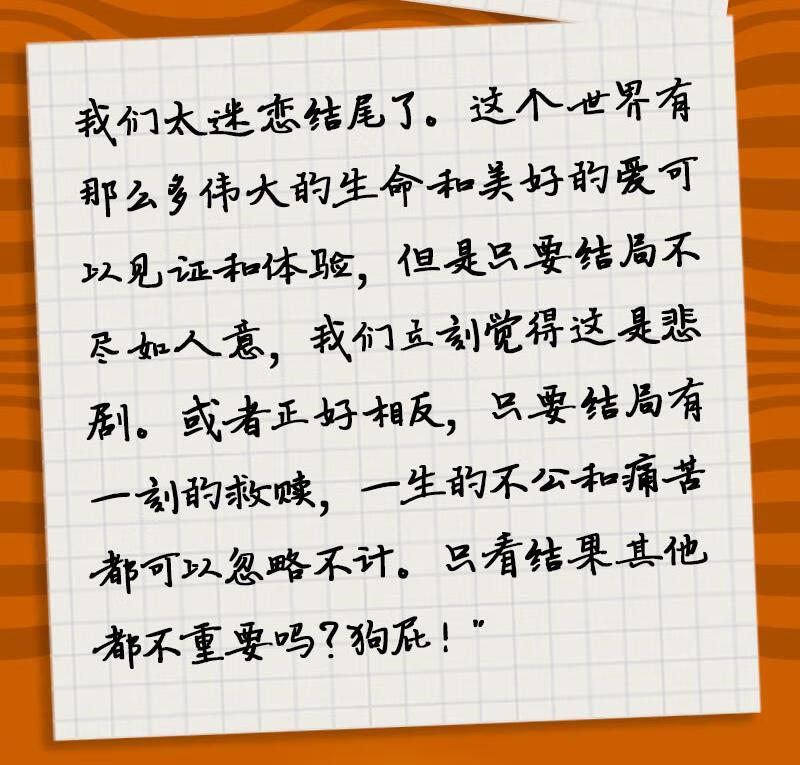 我们太迷恋结尾了。这个世界有
那么多伟大的生命和美好的爱可
以见证和体验，但是只要结局不
尽如人意，我们立刻觉得这是悲
剧。或者正好相反，只要结局有
一刻的救赎，一生的不公和痛苦
都可以忽略不计。只看结果其他
都不重要吗？狗屁！”